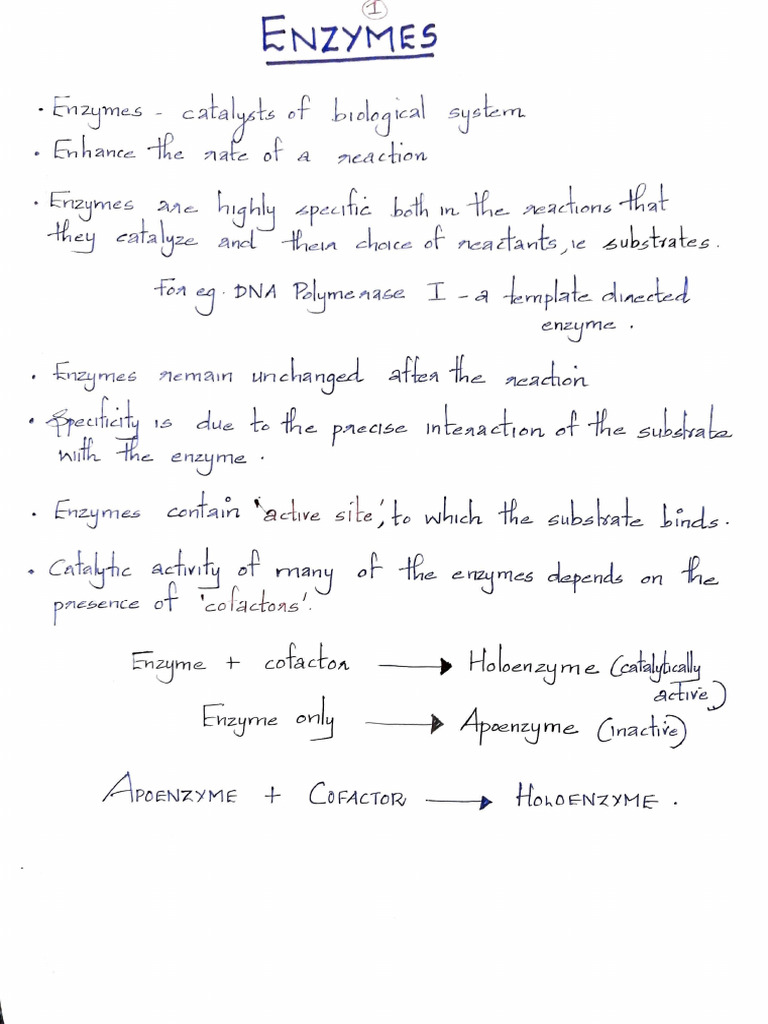 1
ENZYMES
• Enzymes - catalysts of biological system
• Enhance the rate of a reaction
• Enzymes are highly specific both in the reactions that
they catalyze and their choice of reactants, ie substrates.
For eg. DNA Polymerase I - a template directed
enzyme.
• Enzymes remain unchanged after the reaction
• Specificity is due to the precise interaction of the substrate
with the enzyme.
• Enzymes contain 'active site', to which the substrate binds.
• Catalytic activity of many of the enzymes depends on the
presence of 'cofactors'.
Enzyme + cofactor → Holoenzyme (catalytically
active)
Enzyme only → Apoenzyme (inactive)
APOENZYME + COFACTOR → HOLOENZYME.